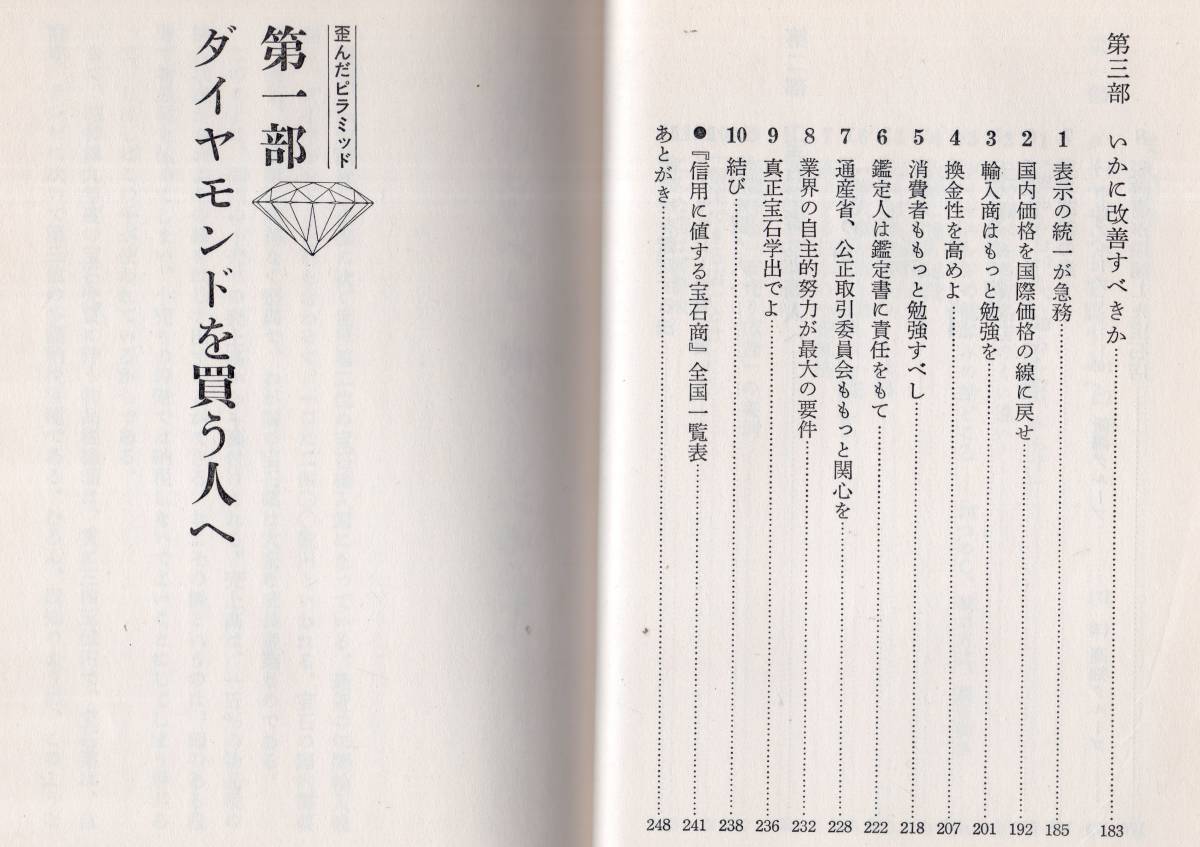 第三部 いかに改善すべきか……183
1 表示の統一が急務……185
2 国内価格を国際価格の線に戻せ……192
3 輸入商はもっと勉強を……201
4 換金性を高めよ……207
5 消費者ももっと勉強すべし……218
6 鑑定人は鑑定書に責任をもて……222
7 通産省、公正取引委員会ももっと関心を……228
8 業界の自主的努力が最大の要件……232
9 真正宝石学出でよ……236
10 結び……238
●『信用に値する宝石商』全国一覧表……241
あとがき……248
歪んだピラミッド
第一部
ダイヤモンドを買う人へ